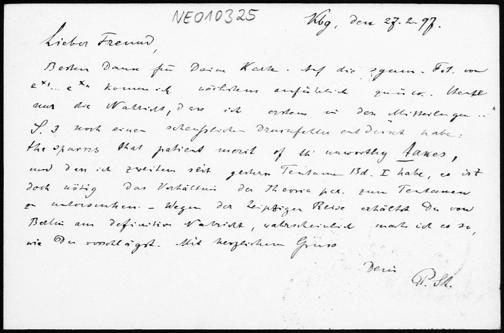 NE010325
Kbg, den 27.2.97.
Lieber Freund,
Besten Dank für Deine Karte. Auf die symm. Fct. von
e^x1 ... e^xn komme ich nächstens ausführlich zurück. Heute
nur die Nachricht, dass ich erstens in den Mittheilungen
S. 3 noch einen scheusslichen Druckfehler entdeckt habe:
the spurns that patient merit of the unworthy takes,
und dass ich zweitens seit gestern Bd. I habe, es ist
doch nötig das Verhältnis der Theorie zum
zu untersuchen. – Wegen der Leipziger Reise erhältst Du von
Berlin aus definitive Nachricht, wahrscheinlich mache ich es so,
wie Du vorschlägst. Mit herzlichem Gruss
Dein
P. St.